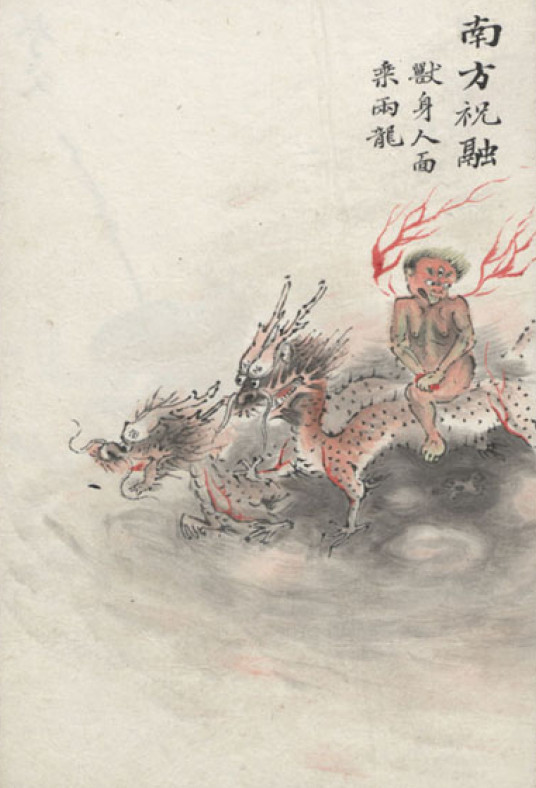 南方祝融
獸身人面
乗兩龍